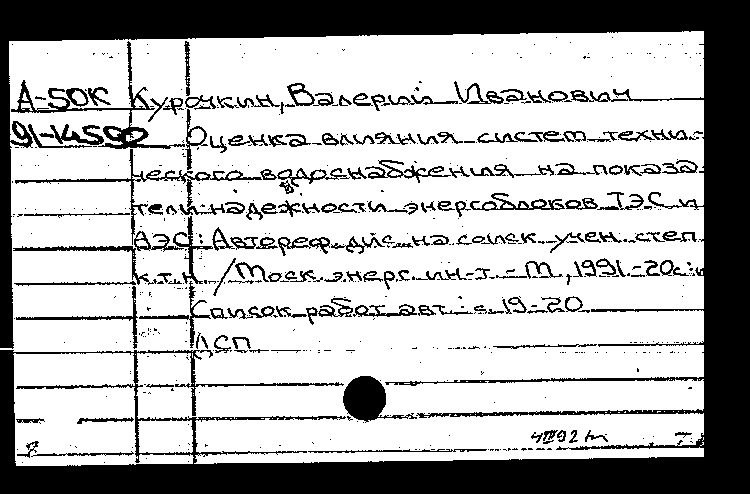 А-50К Курочкин, Валерий Иванович
91-14500 Оценка влияния систем техни-
ческого водоснабжения на показа
тели надежности энергоблоков ТЭС и
АЭС : Автореф. дис. на соиск. учен. степ.
к.т.н. / Моск. энерг. ин-т. - М., 1991 - 20с.: и
Список работ авт.: с. 19-20
ДСП